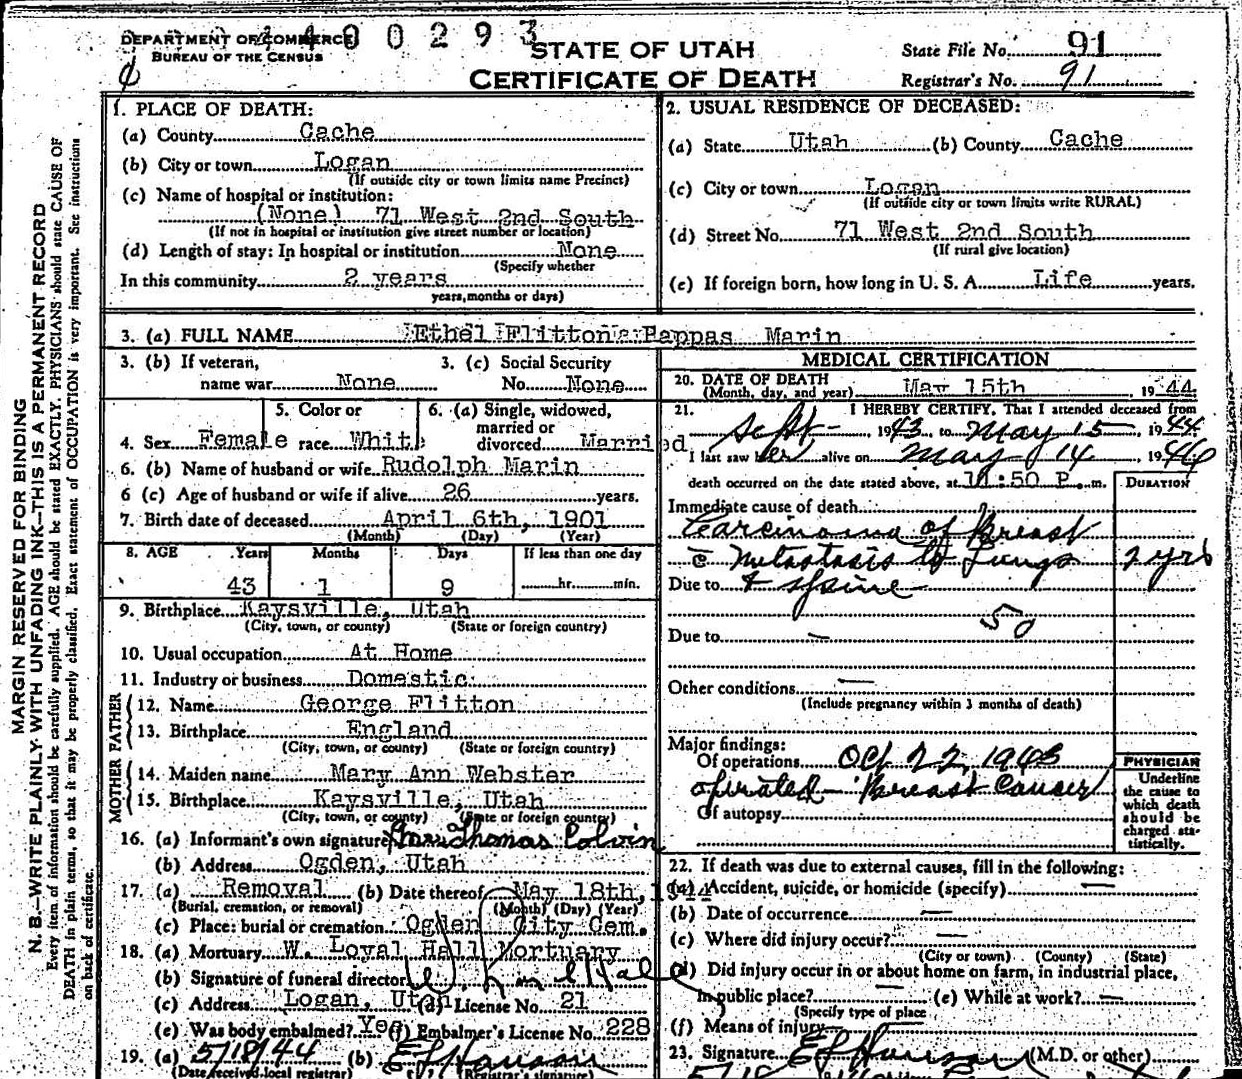 DEPARTMENT OF COMMERCE
BUREAU OF THE CENSUS
4400293
STATE OF UTAH
CERTIFICATE OF DEATH
State File No. 91
Registrar's No. 91
MARGIN RESERVED FOR BINDING
N. B.—WRITE PLAINLY WITH UNFADING INK—THIS IS A PERMANENT RECORD
Every item of information should be carefully supplied. AGE should be stated EXACTLY. PHYSICIANS should state CAUSE OF
DEATH in plain terms, so that it may be properly classified. Exact statement of OCCUPATION is very important. See instructions
on back of certificate.
1. PLACE OF DEATH:
(a) County Cache
(b) City or town Logan
(If outside city or town limits name Precinct)
(c) Name of hospital or institution:
(None) 71 West 2nd South
(If not in hospital or institution give street number or location)
(d) Length of stay: In hospital or institution None
(Specify whether
In this community 2 years
years, months or days)
2. USUAL RESIDENCE OF DECEASED:
(a) State Utah (b) County Cache
(c) City or town Logan
(If outside city or town limits write RURAL)
(d) Street No. 71 West 2nd South
(If rural give location)
(e) If foreign born, how long in U. S. A. Life years.
3. (a) FULL NAME Ethel Flitton Pappas Marin
3. (b) If veteran, name war None
3. (c) Social Security No. None
4. Sex Female
5. Color or race White
6. (a) Single, widowed, married or divorced Married
6. (b) Name of husband or wife Rudolph Marin
6 (c) Age of husband or wife if alive 26 years.
7. Birth date of deceased April 6th, 1901
(Month) (Day) (Year)
8. AGE Years Months Days If less than one day
43 1 9 hr. min.
9. Birthplace Kaysville, Utah
(City, town, or county) (State or foreign country)
10. Usual occupation At Home
11. Industry or business Domestic
FATHER
12. Name George Flitton
13. Birthplace England
(City, town, or county) (State or foreign country)
MOTHER
14. Maiden name Mary Ann Webster
15. Birthplace Kaysville, Utah
(City, town, or county) (State or foreign country)
16. (a) Informant's own signature Thomas Colvin
(b) Address Ogden, Utah
17. (a) Removal (b) Date thereof May 18th, 1944
(Burial, cremation, or removal) (Month) (Day) (Year)
(c) Place: burial or cremation Ogden City Cem.
18. (a) Mortuary W. Loyal Hall Mortuary
(b) Signature of funeral director
(c) Address Logan, Utah (d) License No. 21
(e) Was body embalmed? Yes (f) Embalmer's License No. 228
19. (a) 5/18/44 (b)
(Date received local registrar) (Registrar's signature)
MEDICAL CERTIFICATION
20. DATE OF DEATH
(Month, day, and year) May 15th 1944
21. I HEREBY CERTIFY, That I attended deceased from
Sept- 1943, to May 15 1944
I last saw her alive on May 14 1944
death occurred on the date stated above, at 11:50 P. m.
DURATION
Immediate cause of death
Carcinoma of Breast
c̄ metastasis to Lungs 2 yrs
Due to & Spine
50
Due to —
Other conditions —
(Include pregnancy within 3 months of death)
Major findings:
Of operations Oct 22, 1943
operated - Breast Cancer
Of autopsy
PHYSICIAN
Underline
the cause to
which death
should be
charged sta-
tistically.
22. If death was due to external causes, fill in the following:
(a) Accident, suicide, or homicide (specify) —
(b) Date of occurrence —
(c) Where did injury occur? —
(City or town) (County) (State)
(d) Did injury occur in or about home on farm, in industrial place,
in public place? — (e) While at work? —
(Specify type of place
(f) Means of injury —
23. Signature (M.D. or other)
5/18